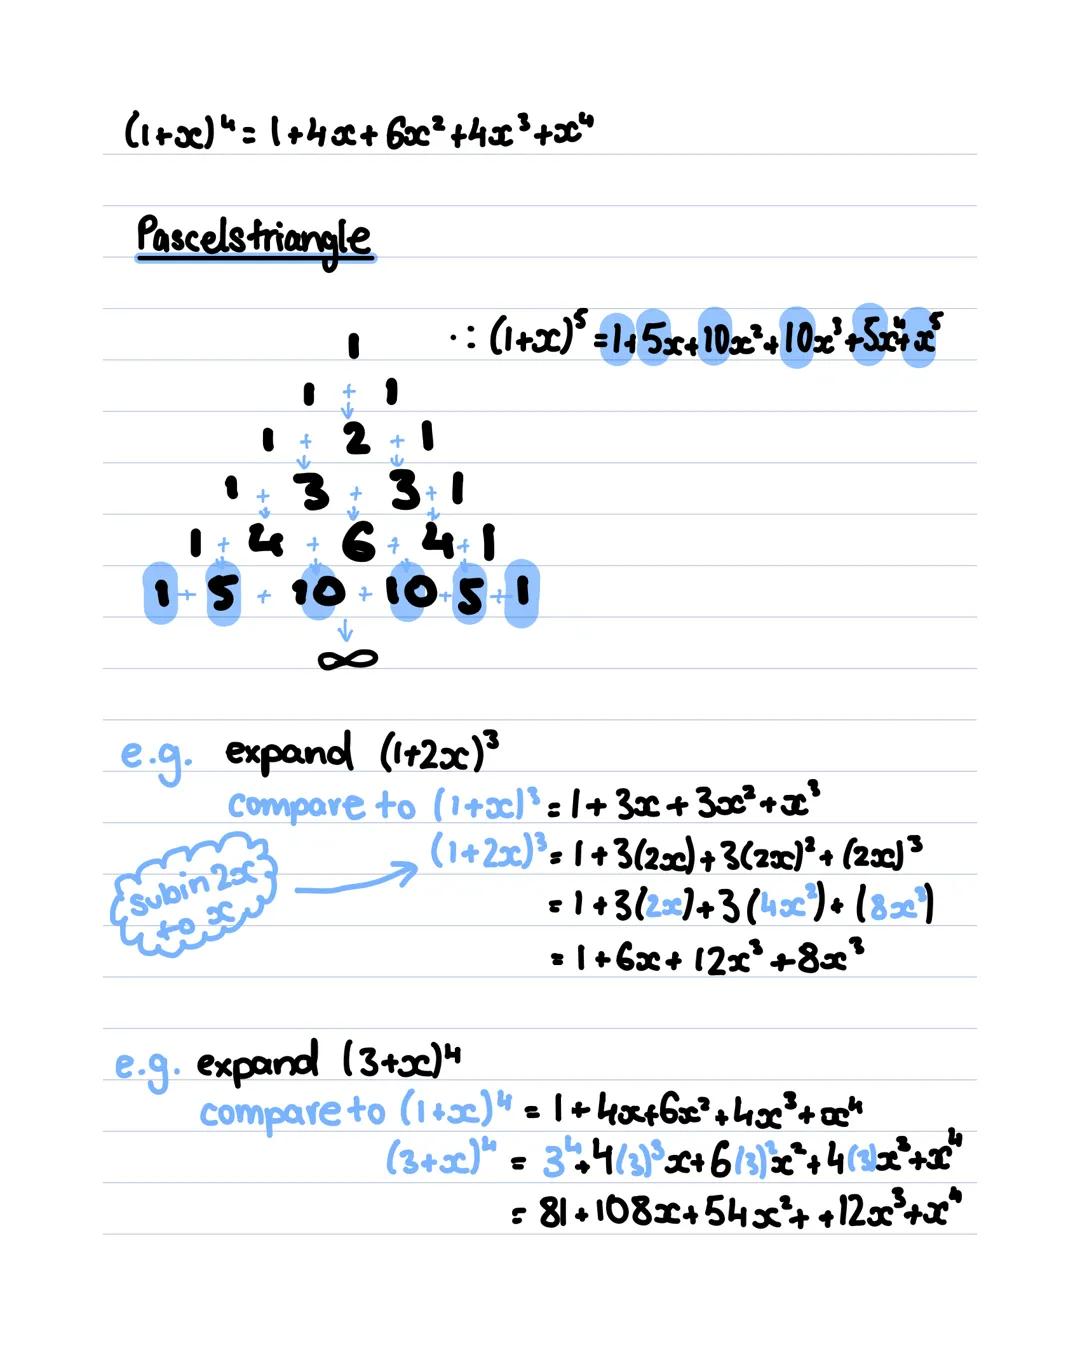 (1+x)⁴ = 1+4x+6x²+4x³+x⁴
Pascelstriangle
∴ (1+x)⁵ = 1+5x+10x²+10x³+5x⁴+x⁵
1
1 + 1
1 + 2 + 1
1 + 3 + 3 + 1
1 + 4 + 6 + 4 + 1
1 + 5 + 10 + 10 + 5 + 1
∞
e.g. expand (1+2x)³
compare to (1+x)³ = 1+3x+3x²+x³
(1+2x)³ = 1+3(2x)+3(2x)²+(2x)³
subin 2x
to x
= 1+3(2x)+3(4x²)+(8x³)
= 1+6x+12x³+8x³
e.g. expand (3+x)⁴
compare to (1+x)⁴ = 1+4x+6x²+4x³+x⁴
(3+x)⁴ = 3⁴+4(3)³x+6(3)²x²+4(3)x³+x⁴
= 81+108x+54x²++12x³+x⁴